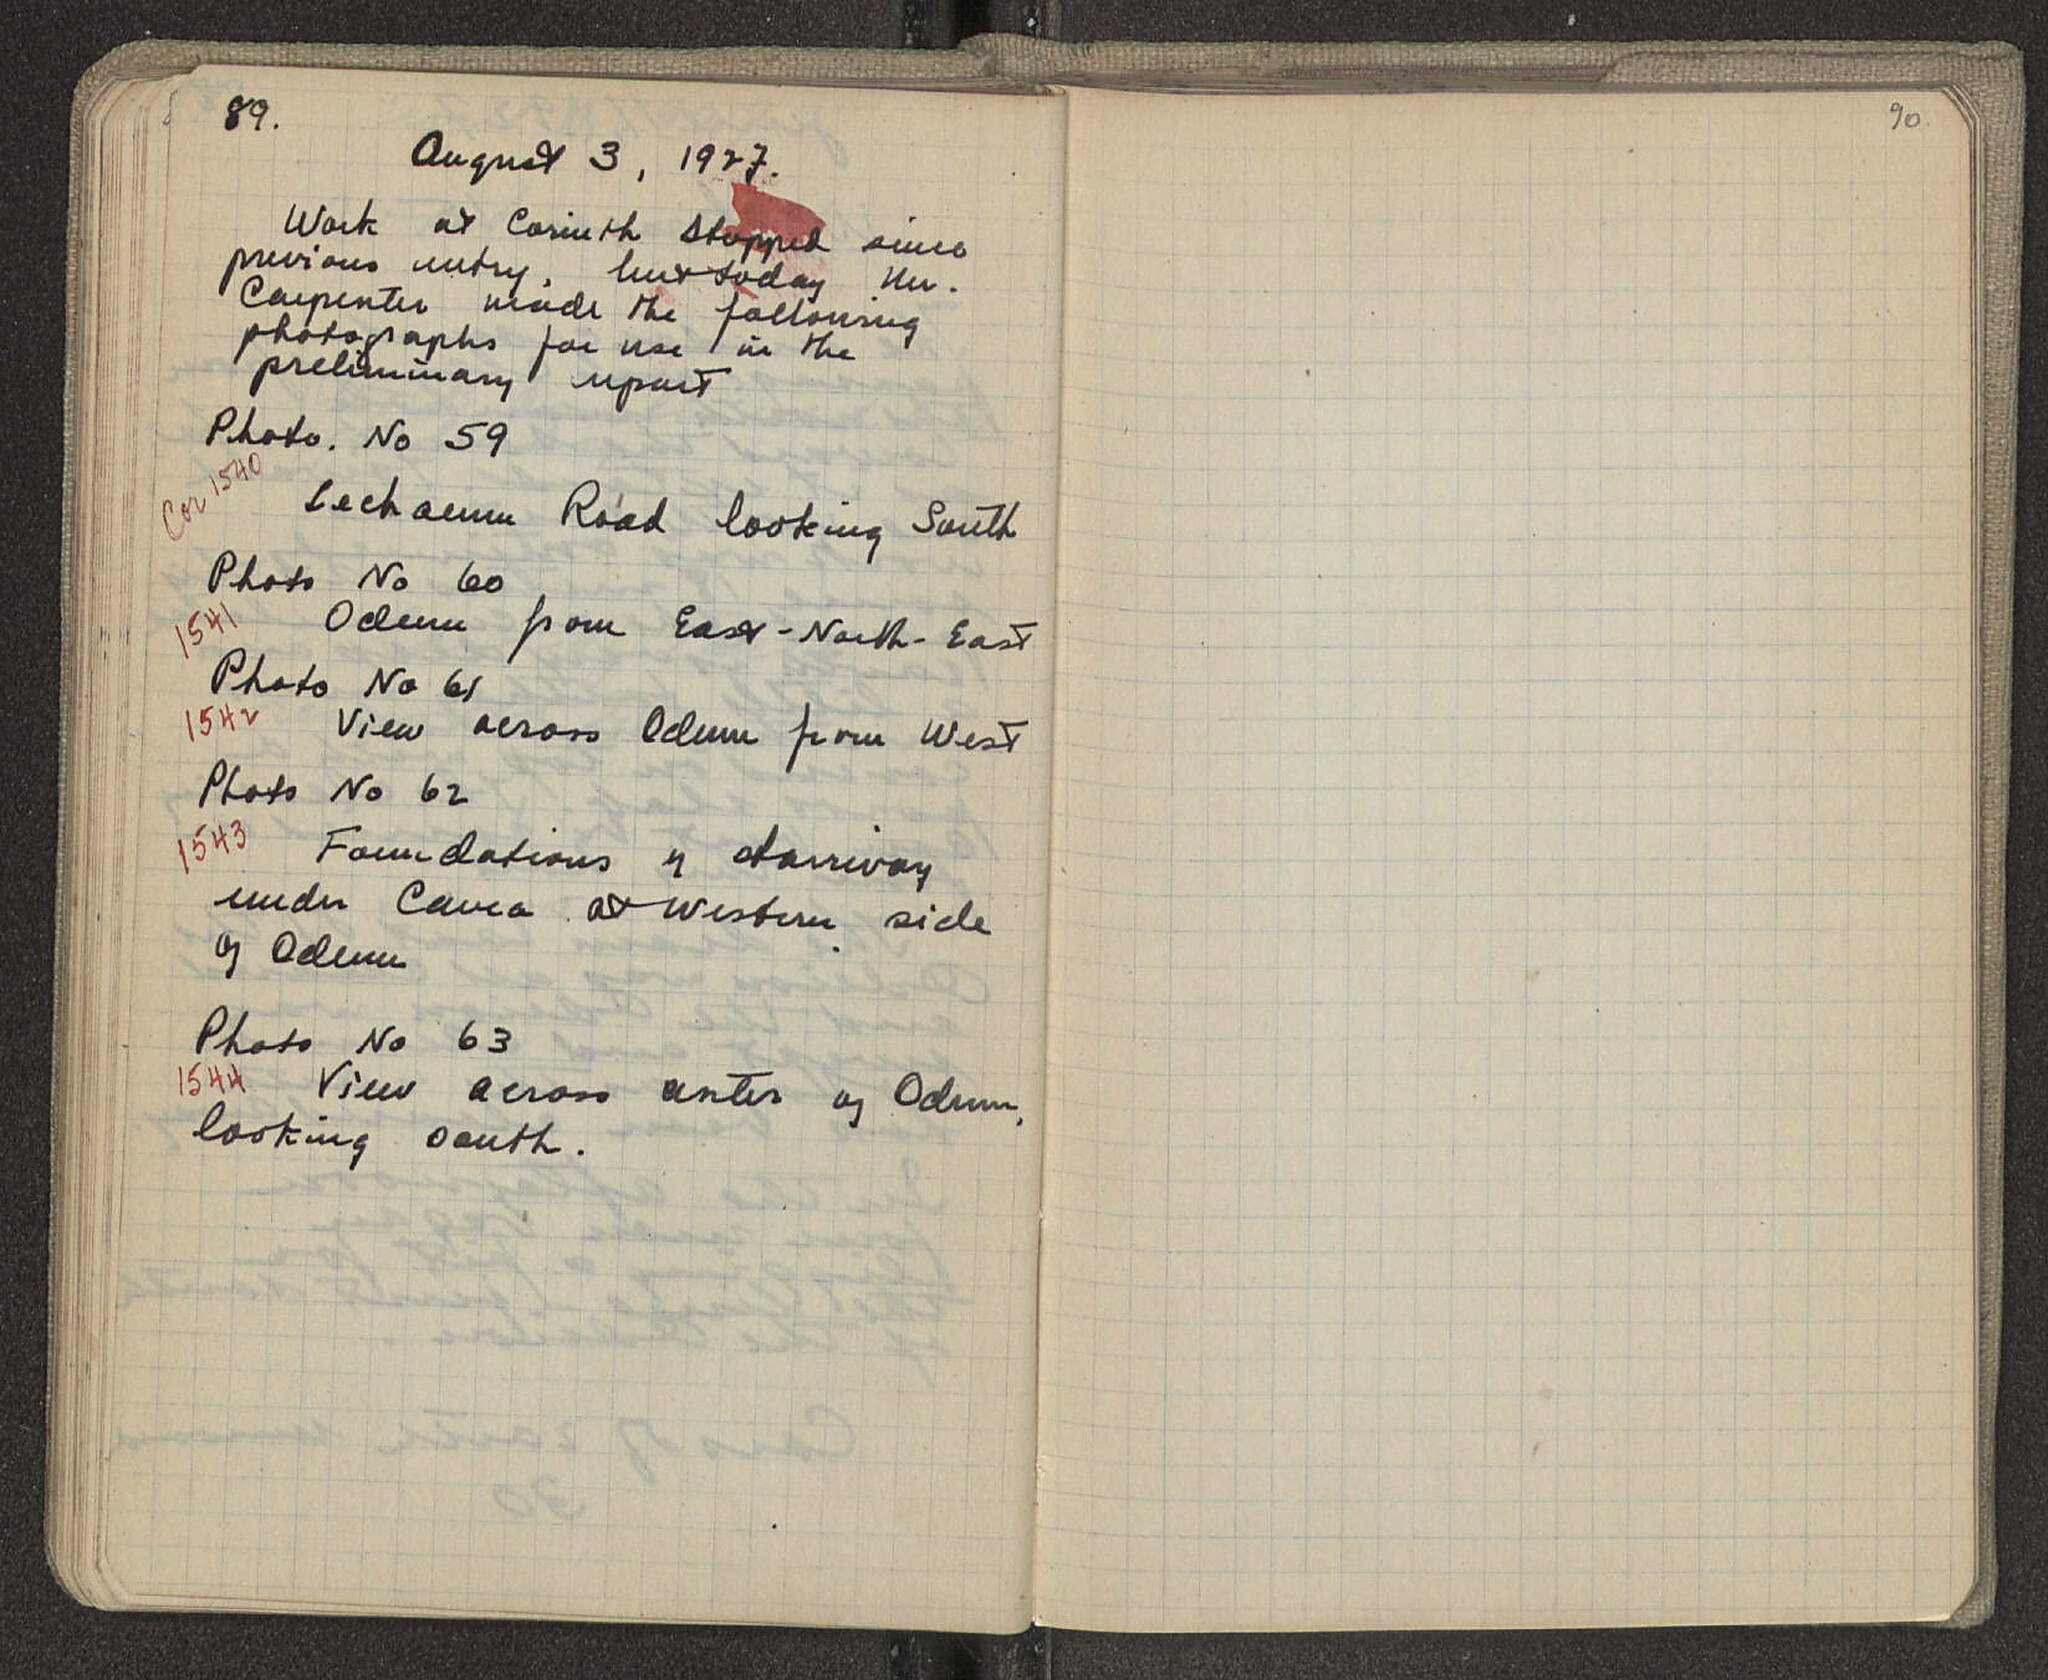 89.
August 3, 1927.
Work at Corinth stopped since
previous entry, but today Mr.
Carpenter made the following
photographs for use in the
preliminary report
Photo. No 59
Cor 1540
Lechaeum Road looking South
Photo No 60
1541 Odeum from East-North-East
Photo No 61
1542 View across Odeum from West
Photo No 62
1543 Foundations of stairway
under Cavea at western side
of Odeum
Photo No 63
1544 View across center of Odeum,
looking south.
90